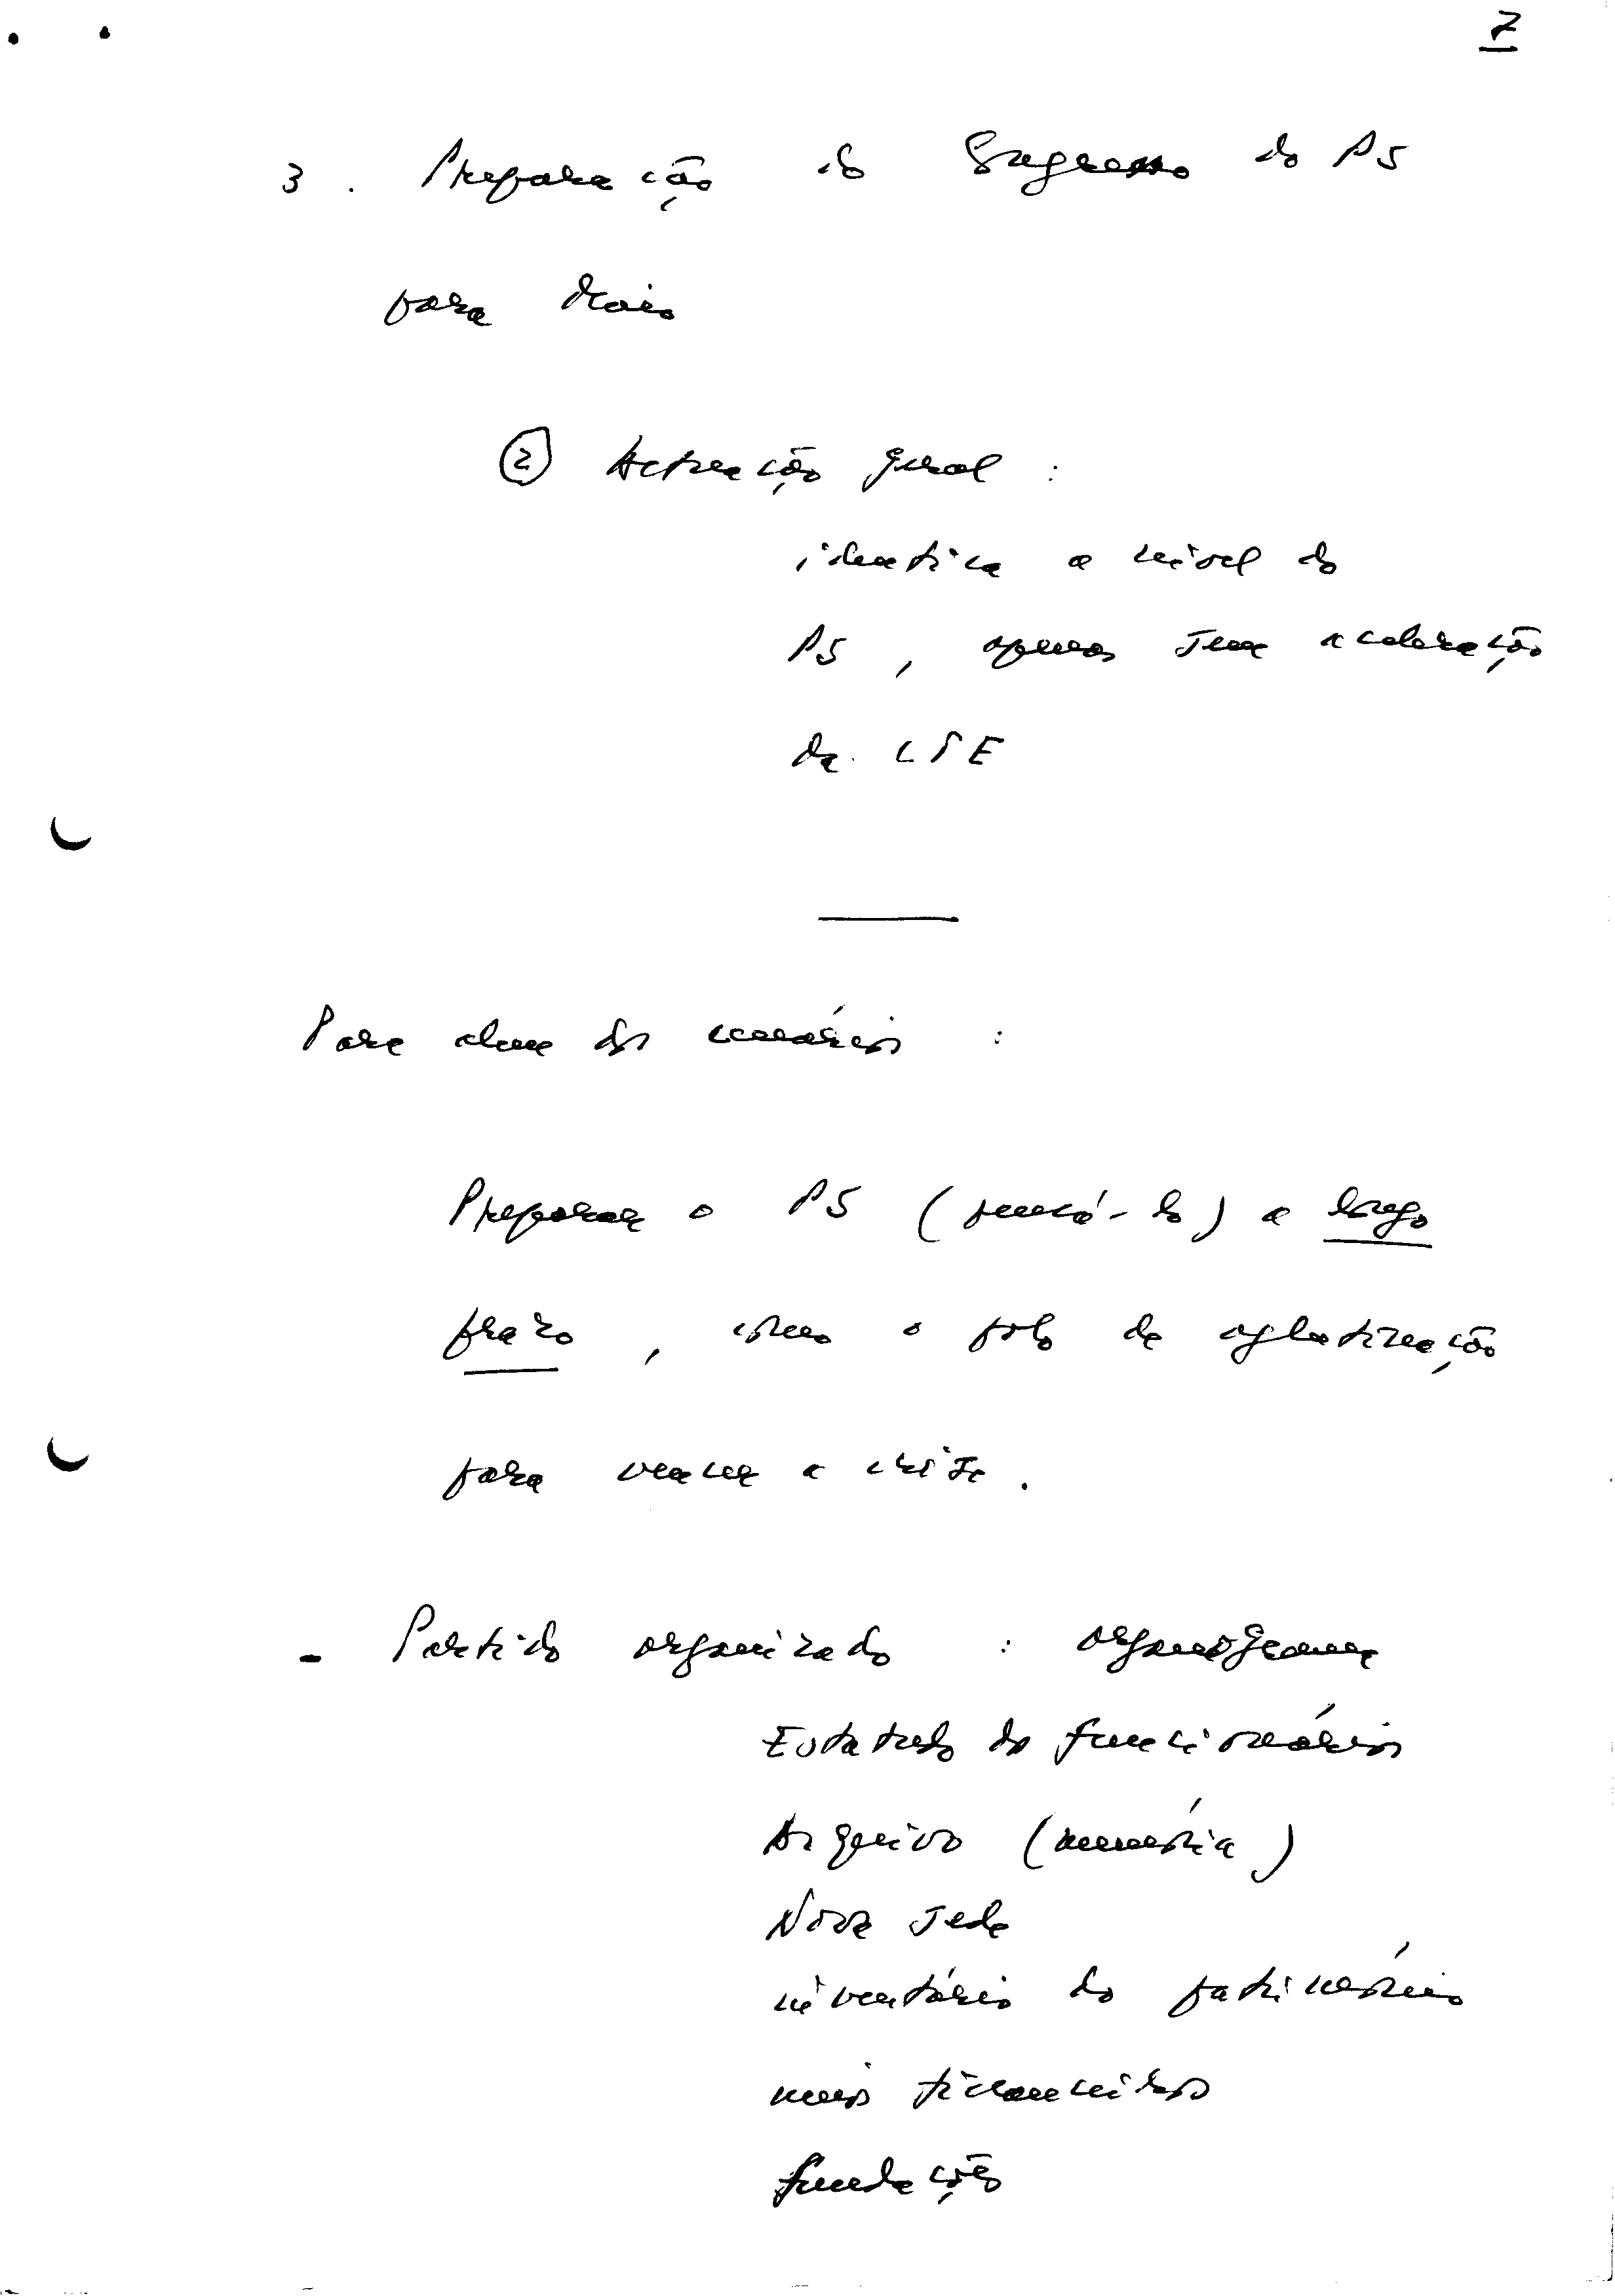 7
3. Preparação do Congresso do PS
para Maio
② Actuação geral :
identica a nível do
PS, apenas sem aceleração
da LPE
Para alem dos cenários :
Preparar o PS ( ) a largo
prazo, como o polo de aglutinação
para vencer a crise.
- Partido organizado : organograma
Estatuto do funcionários
Arquivo (memória)
Nova sede
inventário do património
meios financeiros
fundações